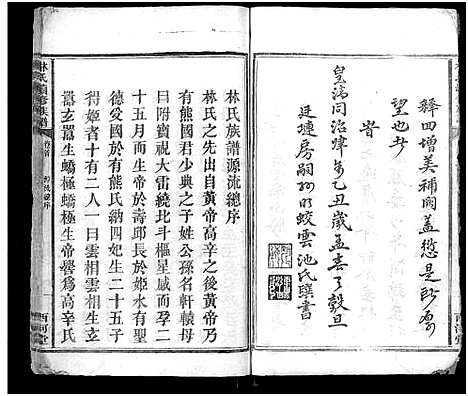 釋回增美補闕蓋愆是所厚
望也夫
旹
皇清同治肆年乙丑歲孟春之穀旦
廷璉房嗣孫明蛟雲池氏撰書
林氏族譜源流總序
林氏之先出自黃帝高辛之後黃帝乃
有熊國君少典之子姓公孫名軒轅母
曰附寶祖大雷繞北斗樞星感而孕二
十五月而生帝於壽邱長於姬水有聖
德受國於有熊氏納四妃生二十五子
得姓者十有二人一曰雲相雲相生
囂玄囂生蟜極蟜極生帝嚳為高辛氏
林氏續修族譜
卷首
西河堂